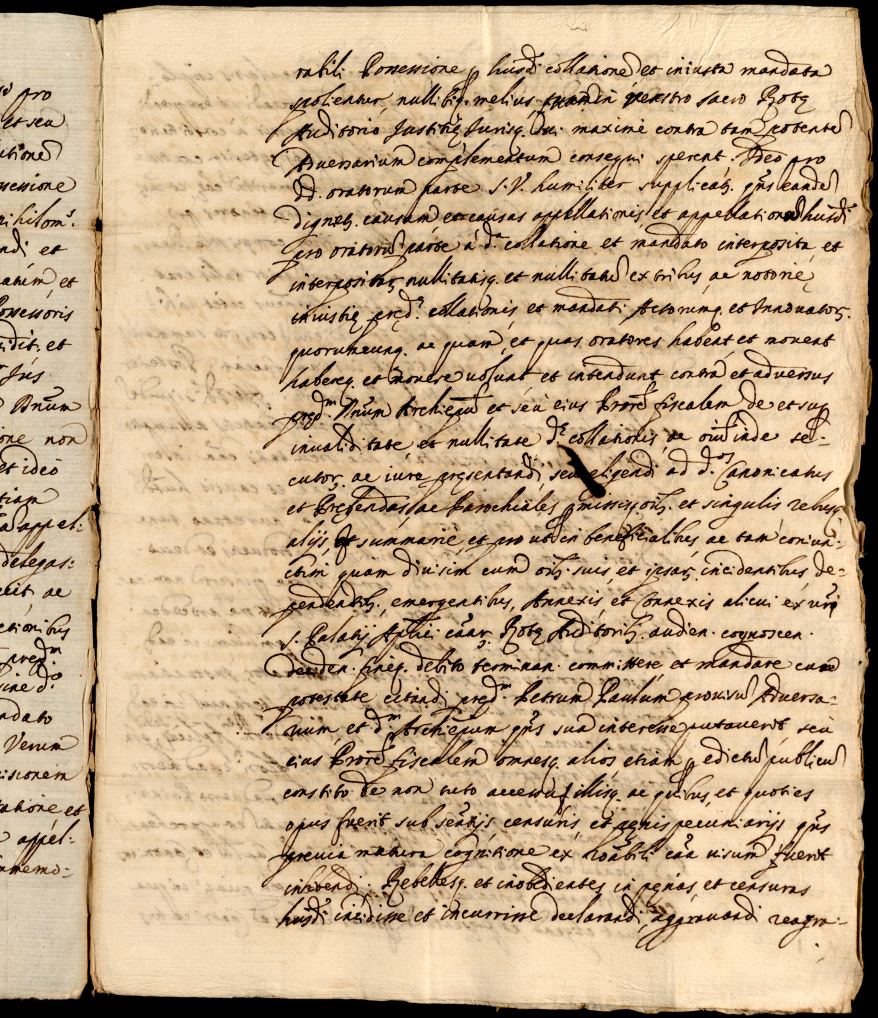 pro
et seu
utione
ossessione
nihilom.s
andi et
et
Possessoris
et
Jus
Dnum
one non
et ideo
tiam
appel:
delegas:
ac
ctionibus
pred.m
sine d.o
ndato
Verum
isionem
et
appel:
inmemo:
rabili Possessione p husdi collatione et iniusta mandata
spolientur, nullibiq. melius quam in vestro sacro Rotę
Auditorio Justitię Jurisq. sui maximè contra tam potente
Adversarium complementum consequi sperent. Ideo pro
DD. oratorum parte S.V. humiliter supplicatr. qns eande
dignetr. causam et causas appellationis, et appellationu husdi
pro oratoru parte à d.a collatione et mandato interposita, et
interpositar. nullitatisq. et nullitatu ex tribus ac notoriè
iniustię pred.e collationis et mandati Actorumq. et Innovator.
quorumcunq. ac quam, et quas oratores habent et movent
habereq. et movere volunt et intendunt contra et adversus
pred.m Dnum Archiepum et seu eius Prore fiscalem de et sup
invaliditate et nullitate d.e collationis, ac inde se-
cutor. ac iure presentandi, seu eligendi ad d.os Canonicatus
et Prębendas, ac Parochiales pmissis, oib. et singulis rebusq.
alijs, et summariè, et pro ut in beneficialibus ac tam coniun-
ctim quam divisim cum oib. suis, et ipsar. incidentibus de-
pendentib., emergentibus, Annexis et Connexis alicui ex vris
S. Palatij Aplici caar. Rotę Auditorib. audien. cognoscen.
deciden. fineq. debito terminan. committere et mandare cum
potestate citandi pred.m Petrum Paulum Adversa-
rium, et d.m Archiepum qns sua interesse putaverit, seu
eius Prore fiscalem omnesq. alios etiam p edictu publicu
constito de non tuto accessu, illisq. ac quibus, et quoties
opus fuerit sub sentijs censuris, et pęnis pecuniarijs qns
previa matura cognitione ex roabili caa visum fuerit
inhibendi: Rebellesq. et inobedientes in pęnas et censuras
husdi incidisse et incurrisse declarandi, aggravandi reagra-